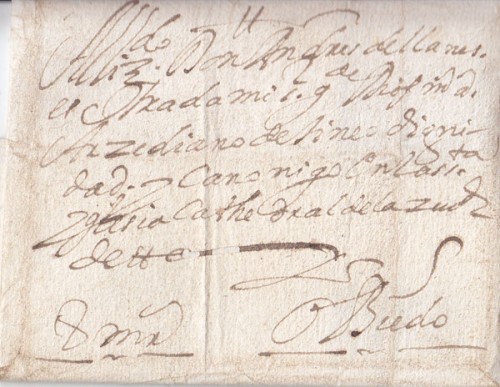 Al liz.do Don Andres de llanes
estradami s.r g.de Prof m.a
Arzediano de tineo digni
dad. y Canonigo En la s.ta
Yglesia Cathedral de la ziud
de etta
8 mrs
Obiedo